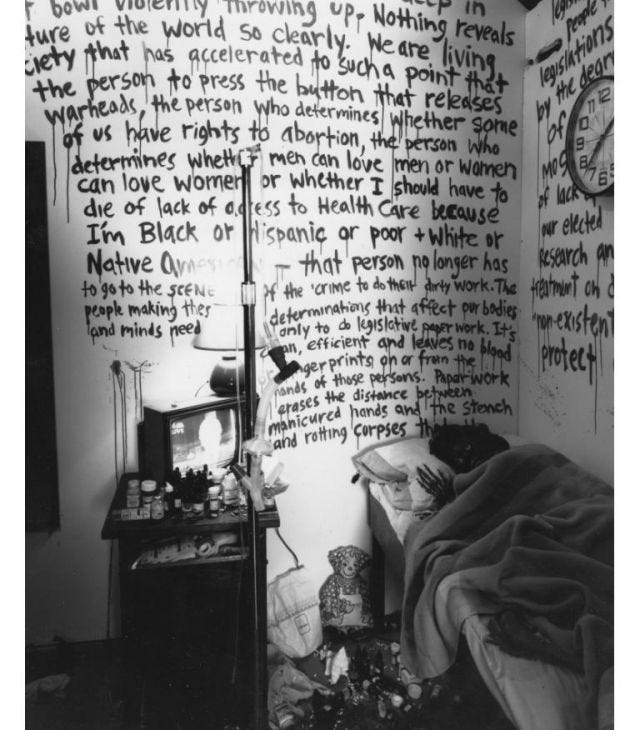 bowl violently throwing up, Nothing reveals
ture of the world so clearly. We are living
ciety that has accelerated to such a point that
the person to press the button that releases
warheads, the person who determines whether some
of us have rights to abortion, the person who
determines whether men can love men or women
can love women or whether I should have to
die of lack of access to Health Care because
I'm Black or Hispanic or poor + white or
Native — that person no longer has
to go to the SCENE of the 'crime to do their dirty work. The
people making thes determinations that affect our bodies
and minds need only to do legislative paper work. It's
an, efficient and leaves no blood
nger prints on or from the
hands of those persons. Paper work
erases the distance between
manicured hands and the stench
and rotting corpses
people
legislations
by the degre
of
of lack
our elected
Research an
treatment on
"non-existent
protect
11 12